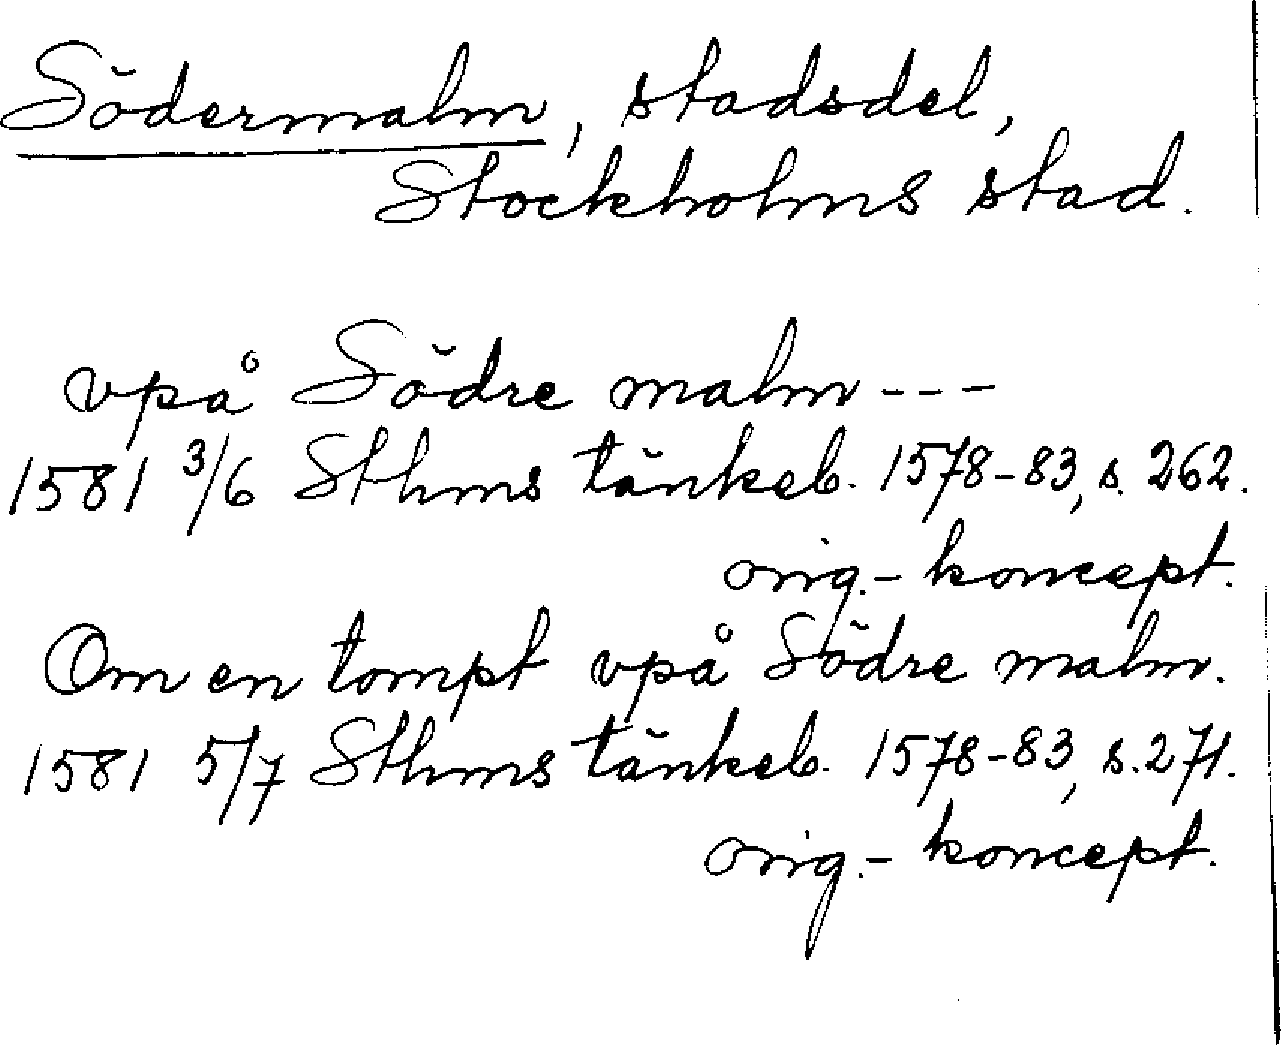 Södermalm, stadsdel,
Stockholms stad.
vpå Södre malm---
1581 3/6 Sthms tänkeb. 1578-83, s. 262.
orig.- koncept.
Om en tompt vpå Södre malm.
1581 5/7 Sthms tänkeb. 1578-83, s. 271.
orig.- koncept.